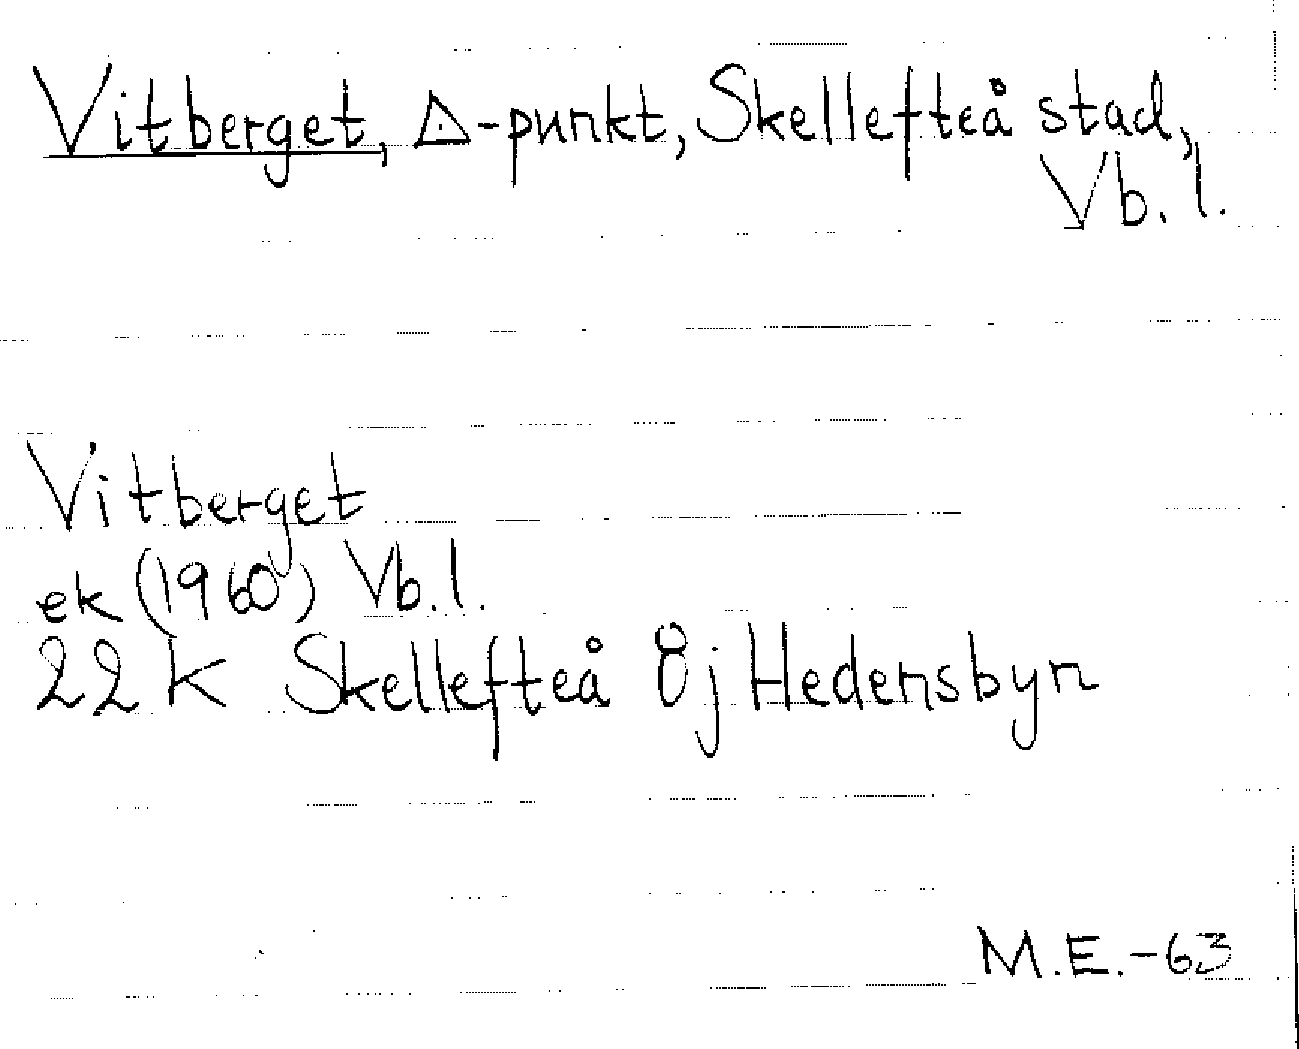 Vitberget, △-punkt, Skellefteå stad,
Vb. l.
Vitberget
ek (1960) Vb. l.
22 K Skellefteå 8j Hedensbyn
M.E.-63